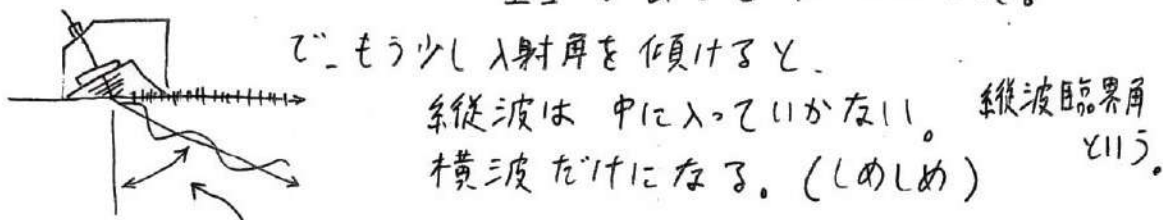 で、もう少し入射角を傾けると、
縦波は 中に入っていかない。 縦波臨界角
という。
横波だけになる。(しめしめ)